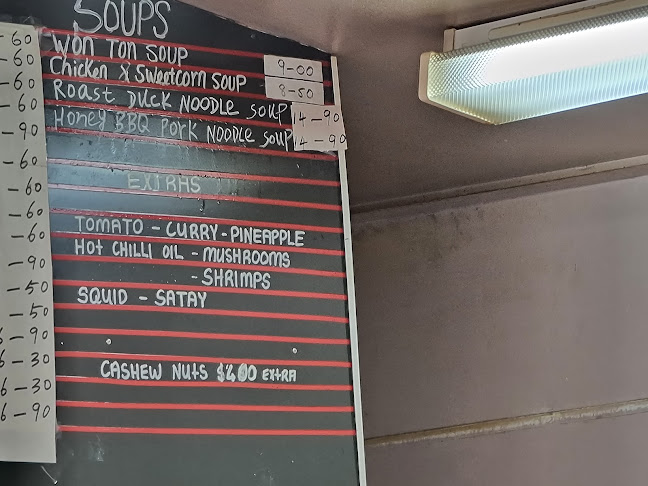 SOUPS
WON TON SOUP 9-00
Chicken & Sweetcorn SOUP 8-50
Roast DUCK NOODLE SOUP 14-90
Honey BBQ PORK NOODLE SOUP 14-90
EXTRAS
TOMATO - CURRY - PINEAPPLE
HOT CHILLI OIL - MUSHROOMS
- SHRIMPS
SQUID - SATAY
CASHEW NUTS EXTRA
60
-60
-60
-60
-90
-60
-60
-60
-60
-90
-50
-50
6-90
6-30
6-30
6-90